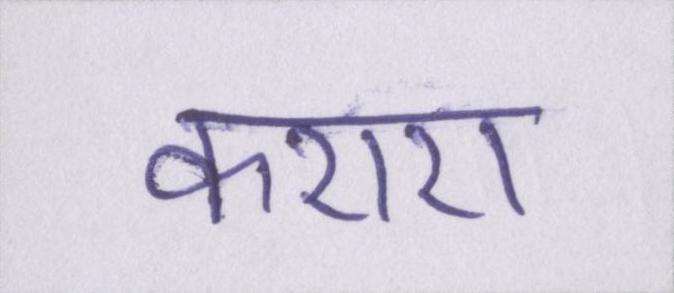 करारा